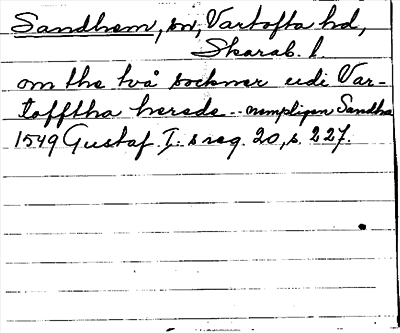 Sandhem, sn, Vartofta hd,
Skarab. l.
om the två sockner udi Var-
tofftha herede -- nempligen Sandha
1549 Gustaf I:s reg. 20, s. 227.